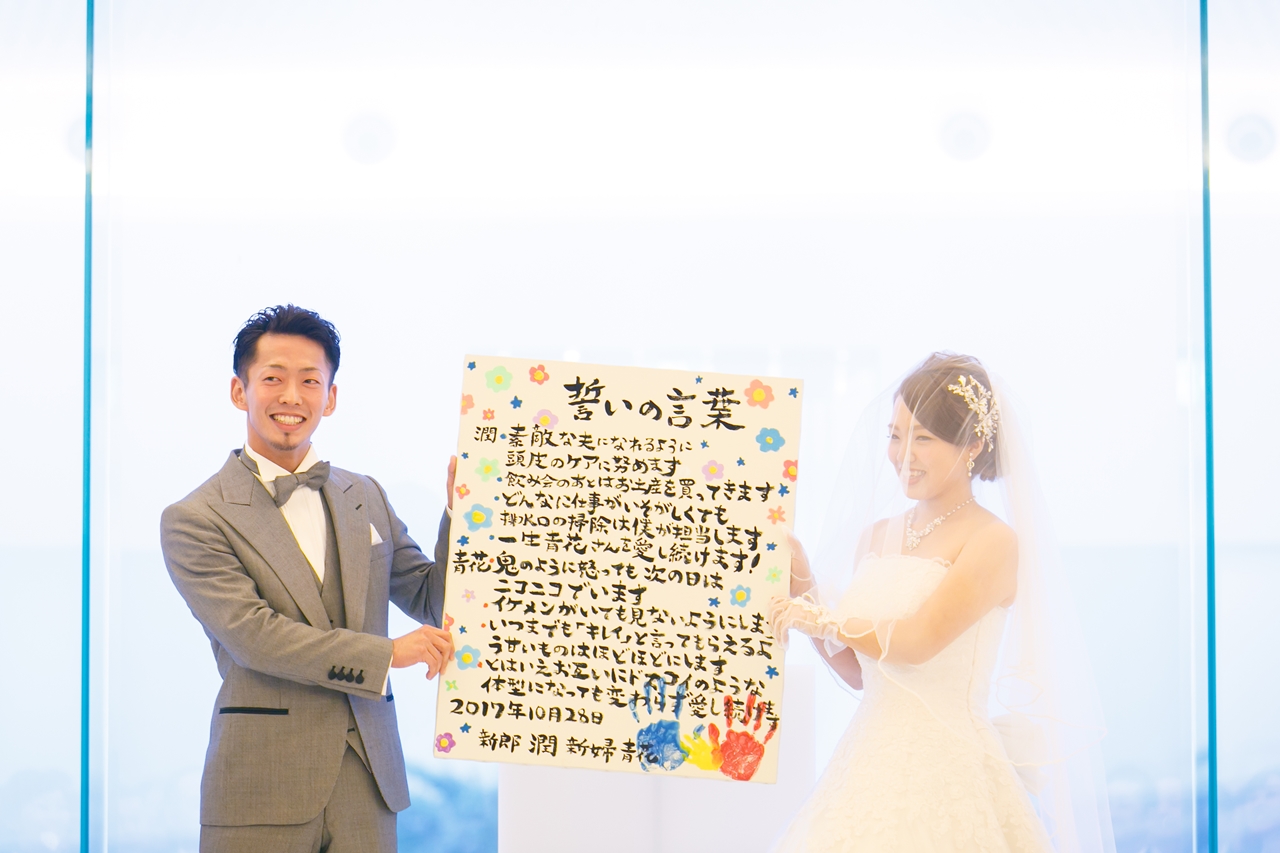 誓いの言葉
潤・素敵な夫になれるように
頭皮のケアに努めます
飲み会のあとはお土産を買ってきます
どんなに仕事がいそがしくても
排水口の掃除は僕が担当します
一生青花さんを愛し続けます!
青花・鬼のように怒っても次の日は
ニコニコでいます
・イケメンがいても見ないようにしま
・いつまでも「キレイ」と言ってもらえるよ
うせいものはほどほどにします
・とはいえお互いにドスコイのような
体型になっても変わらず愛し続けます
2017年10月28日
新郎 潤 新婦 青花